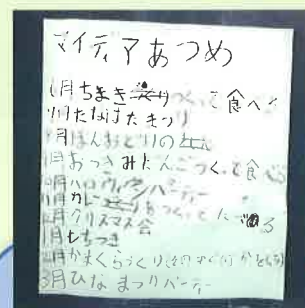 マイディアあつめ
6月ちまき つくって食べる
7月たなばたまつり
8月ぼんおどりの
9月おつきみだんごつくって食べる
10月ハロウィンパーティー
11月カレー つくってたべる
12月クリスマス会
1月もちつき
2月かまくらづくり
3月ひなまつりパーティー